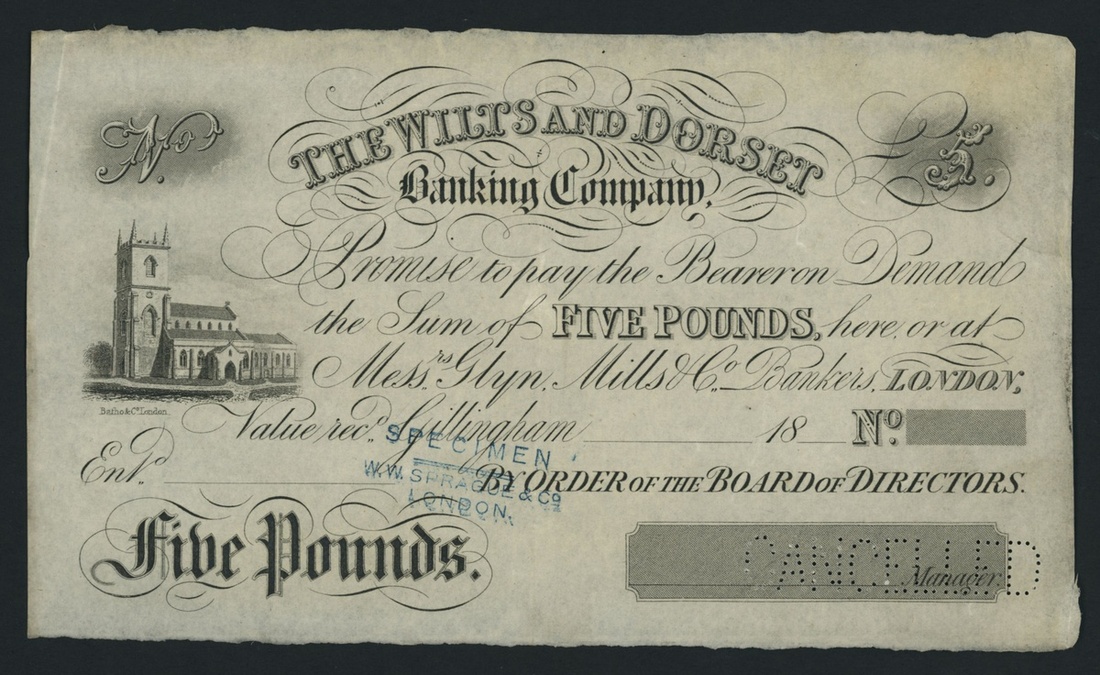 No.
£5.
THE WILTS AND DORSET
Banking Company,
Promise to pay the Bearer on Demand
the Sum of FIVE POUNDS, here, or at
Messrs. Glyn, Mills & Co. Bankers, LONDON,
Batho & Co. London.
Value recd. Gillingham 18 No.
SPECIMEN
W.W. SPRAGUE & Co
LONDON.
Entd. BY ORDER OF THE BOARD OF DIRECTORS.
Five Pounds.
CANCELLED
Manager.